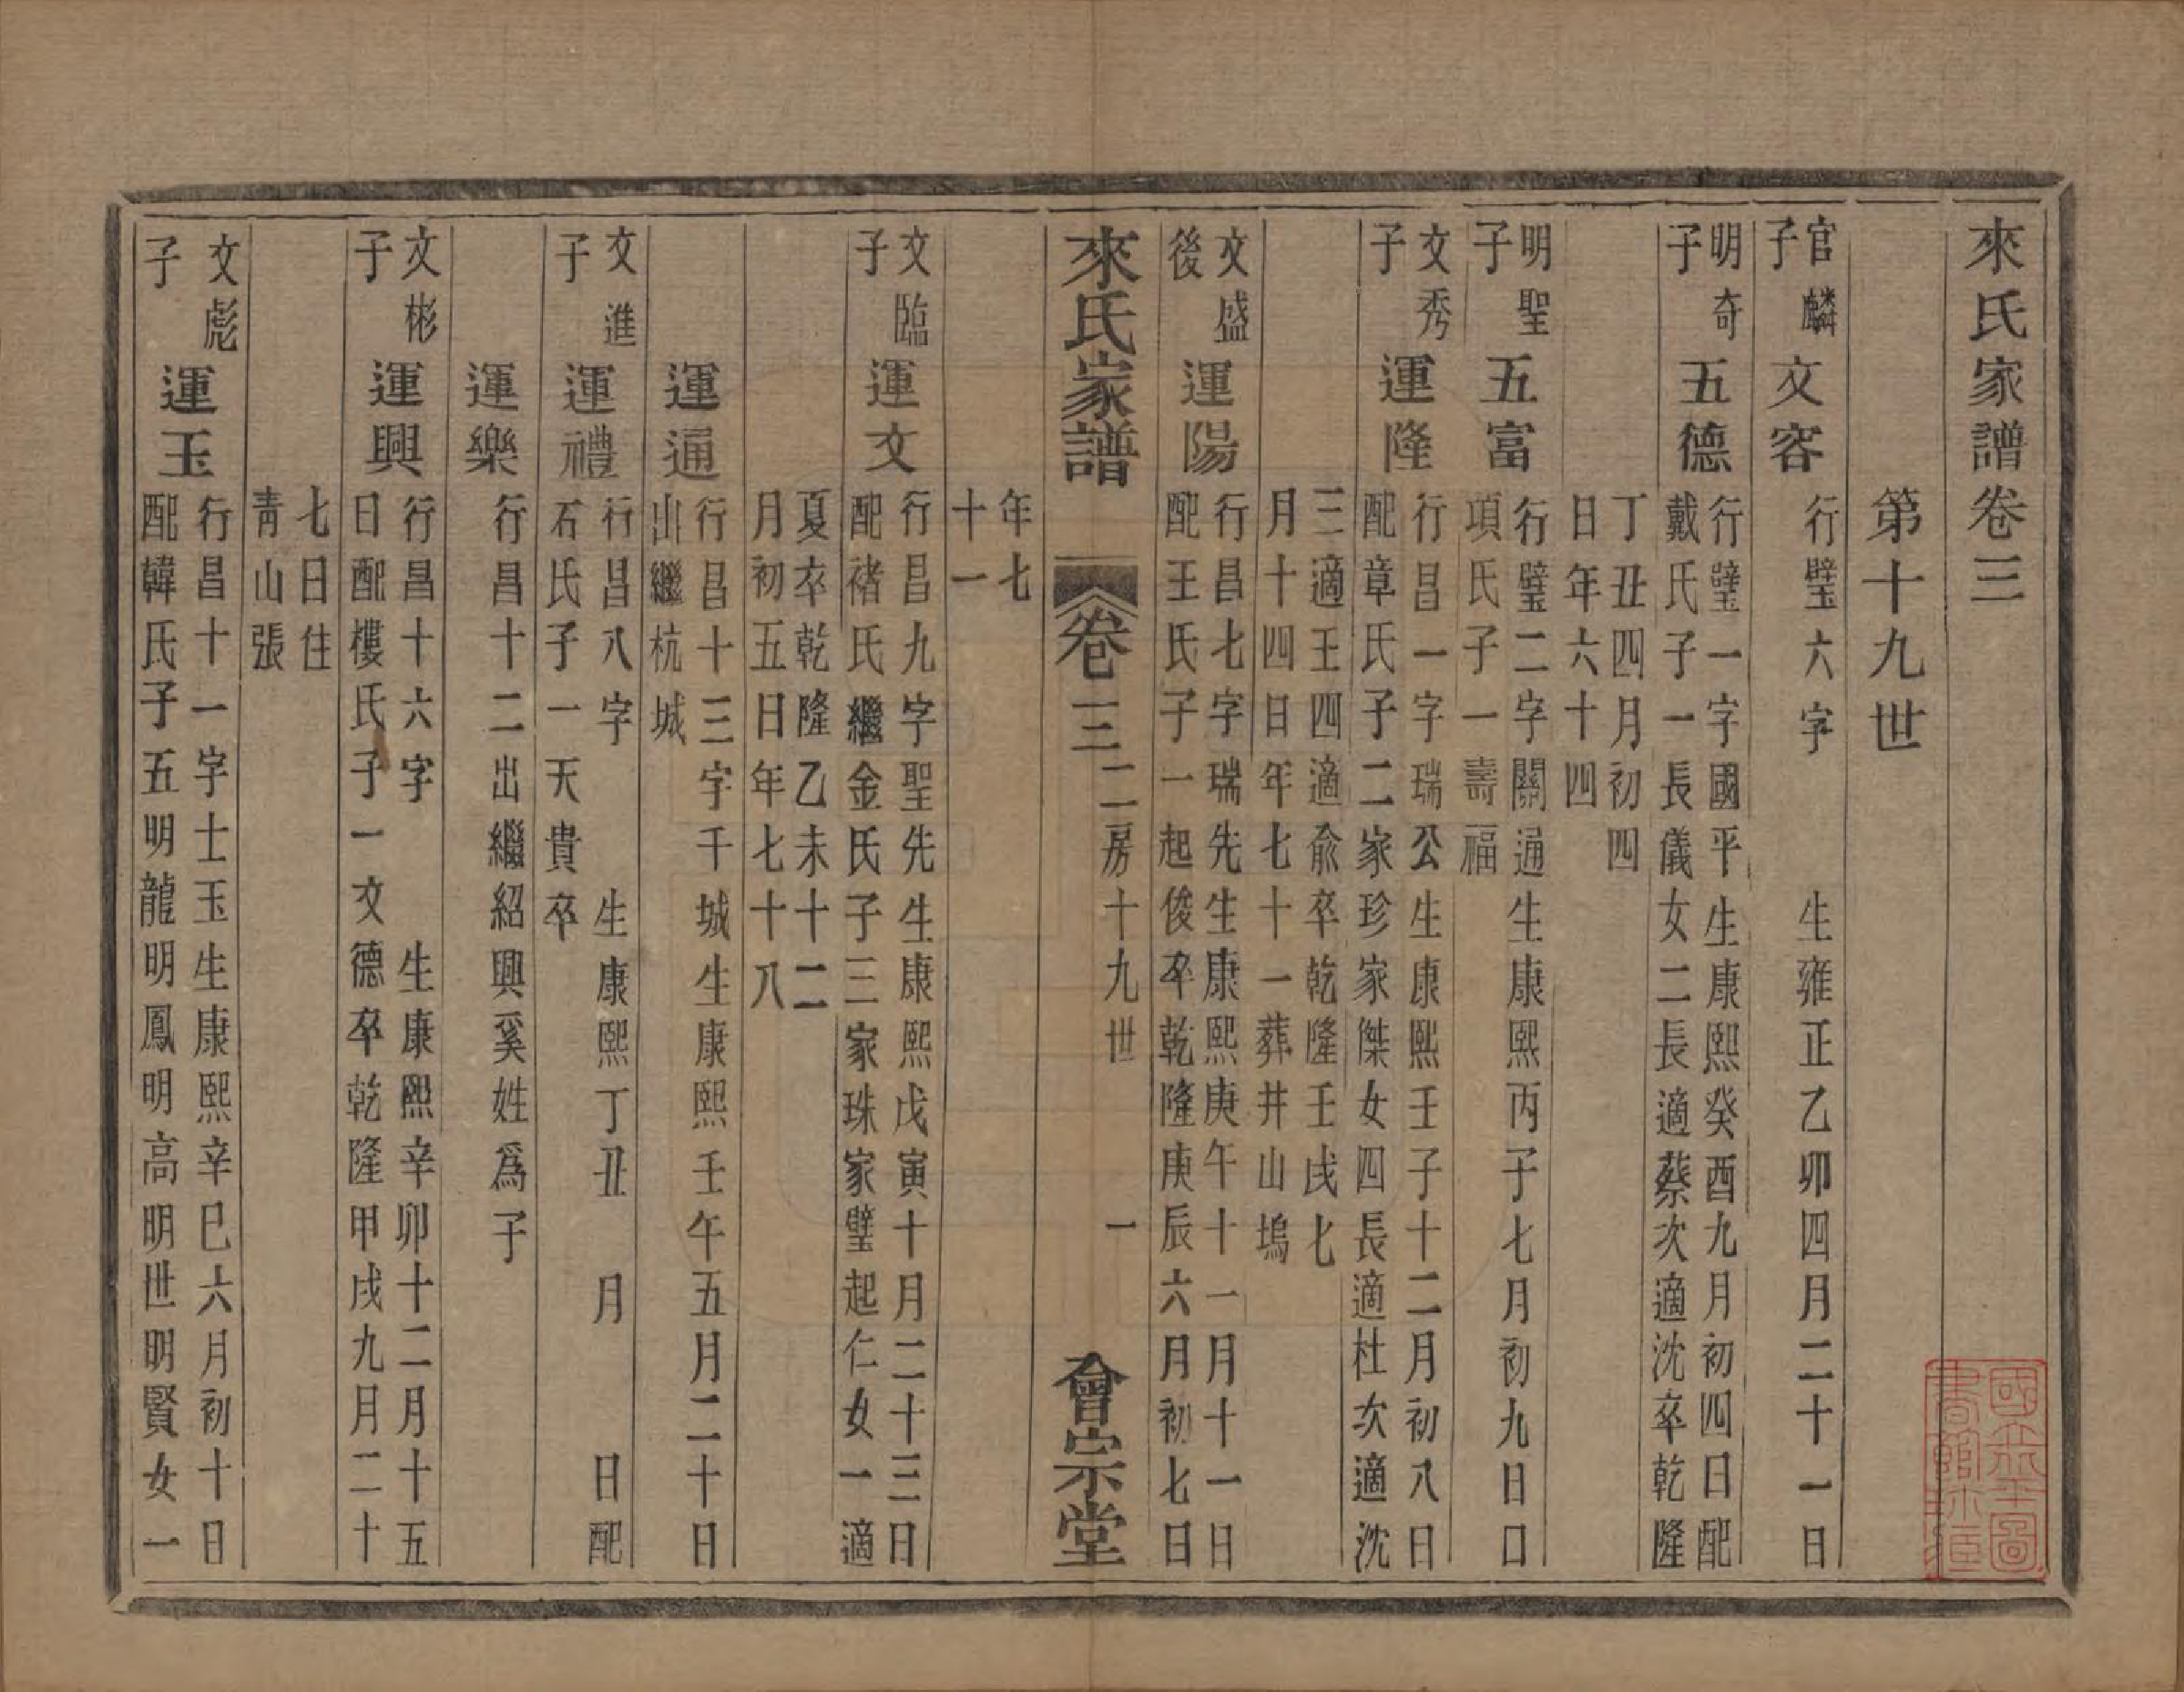 來氏家譜卷三
第十九世
官麟
子
文容
行璧六字　生雍正乙卯四月二十一日
明奇
子
五德
行璧一字國平生康熙癸酉九月初四日配
戴氏子一長儀女二長適蔡次適沈卒乾隆
丁丑四月初四
日年六十四
明聖
子
五富
行璧二字關通生康熙丙子七月初九日口
項氏子一壽福
文秀
子
運隆
行昌一字瑞公生康熙壬子十二月初八日
配章氏子二家珍家傑女四長適杜次適沈
三適王四適俞卒乾隆壬戌七
月十四日年七十一葬井山塢
文盛
後
運陽
行昌七字瑞先生康熙庚午十一月十一日
配王氏子一起俊卒乾隆庚辰六月初七日
來氏家譜　卷三　二房十九世　一　會宗堂
年七
十一
文臨
子
運文
行昌九字聖先生康熙戊寅十月二十三日
配褚氏繼金氏子三家珠家璧起仁女一適
夏卒乾隆乙未十二
月初五日年七十八
運通
行昌十三字千城生康熙壬午五月二十日
出繼杭城
文進
子
運禮
行昌八字　生康熙丁丑　月　日配
石氏子一天貴卒
運樂
行昌十二出繼紹興奚姓爲子
文彬
子
運興
行昌十六字　生康熙辛卯十二月十五
日配樓氏子一文德卒乾隆甲戌九月二十
七日住
靑山張
文彪
子
運玉
行昌十一字士玉生康熙辛巳六月初十日
配韓氏子五明龍明鳳明高明世明賢女一